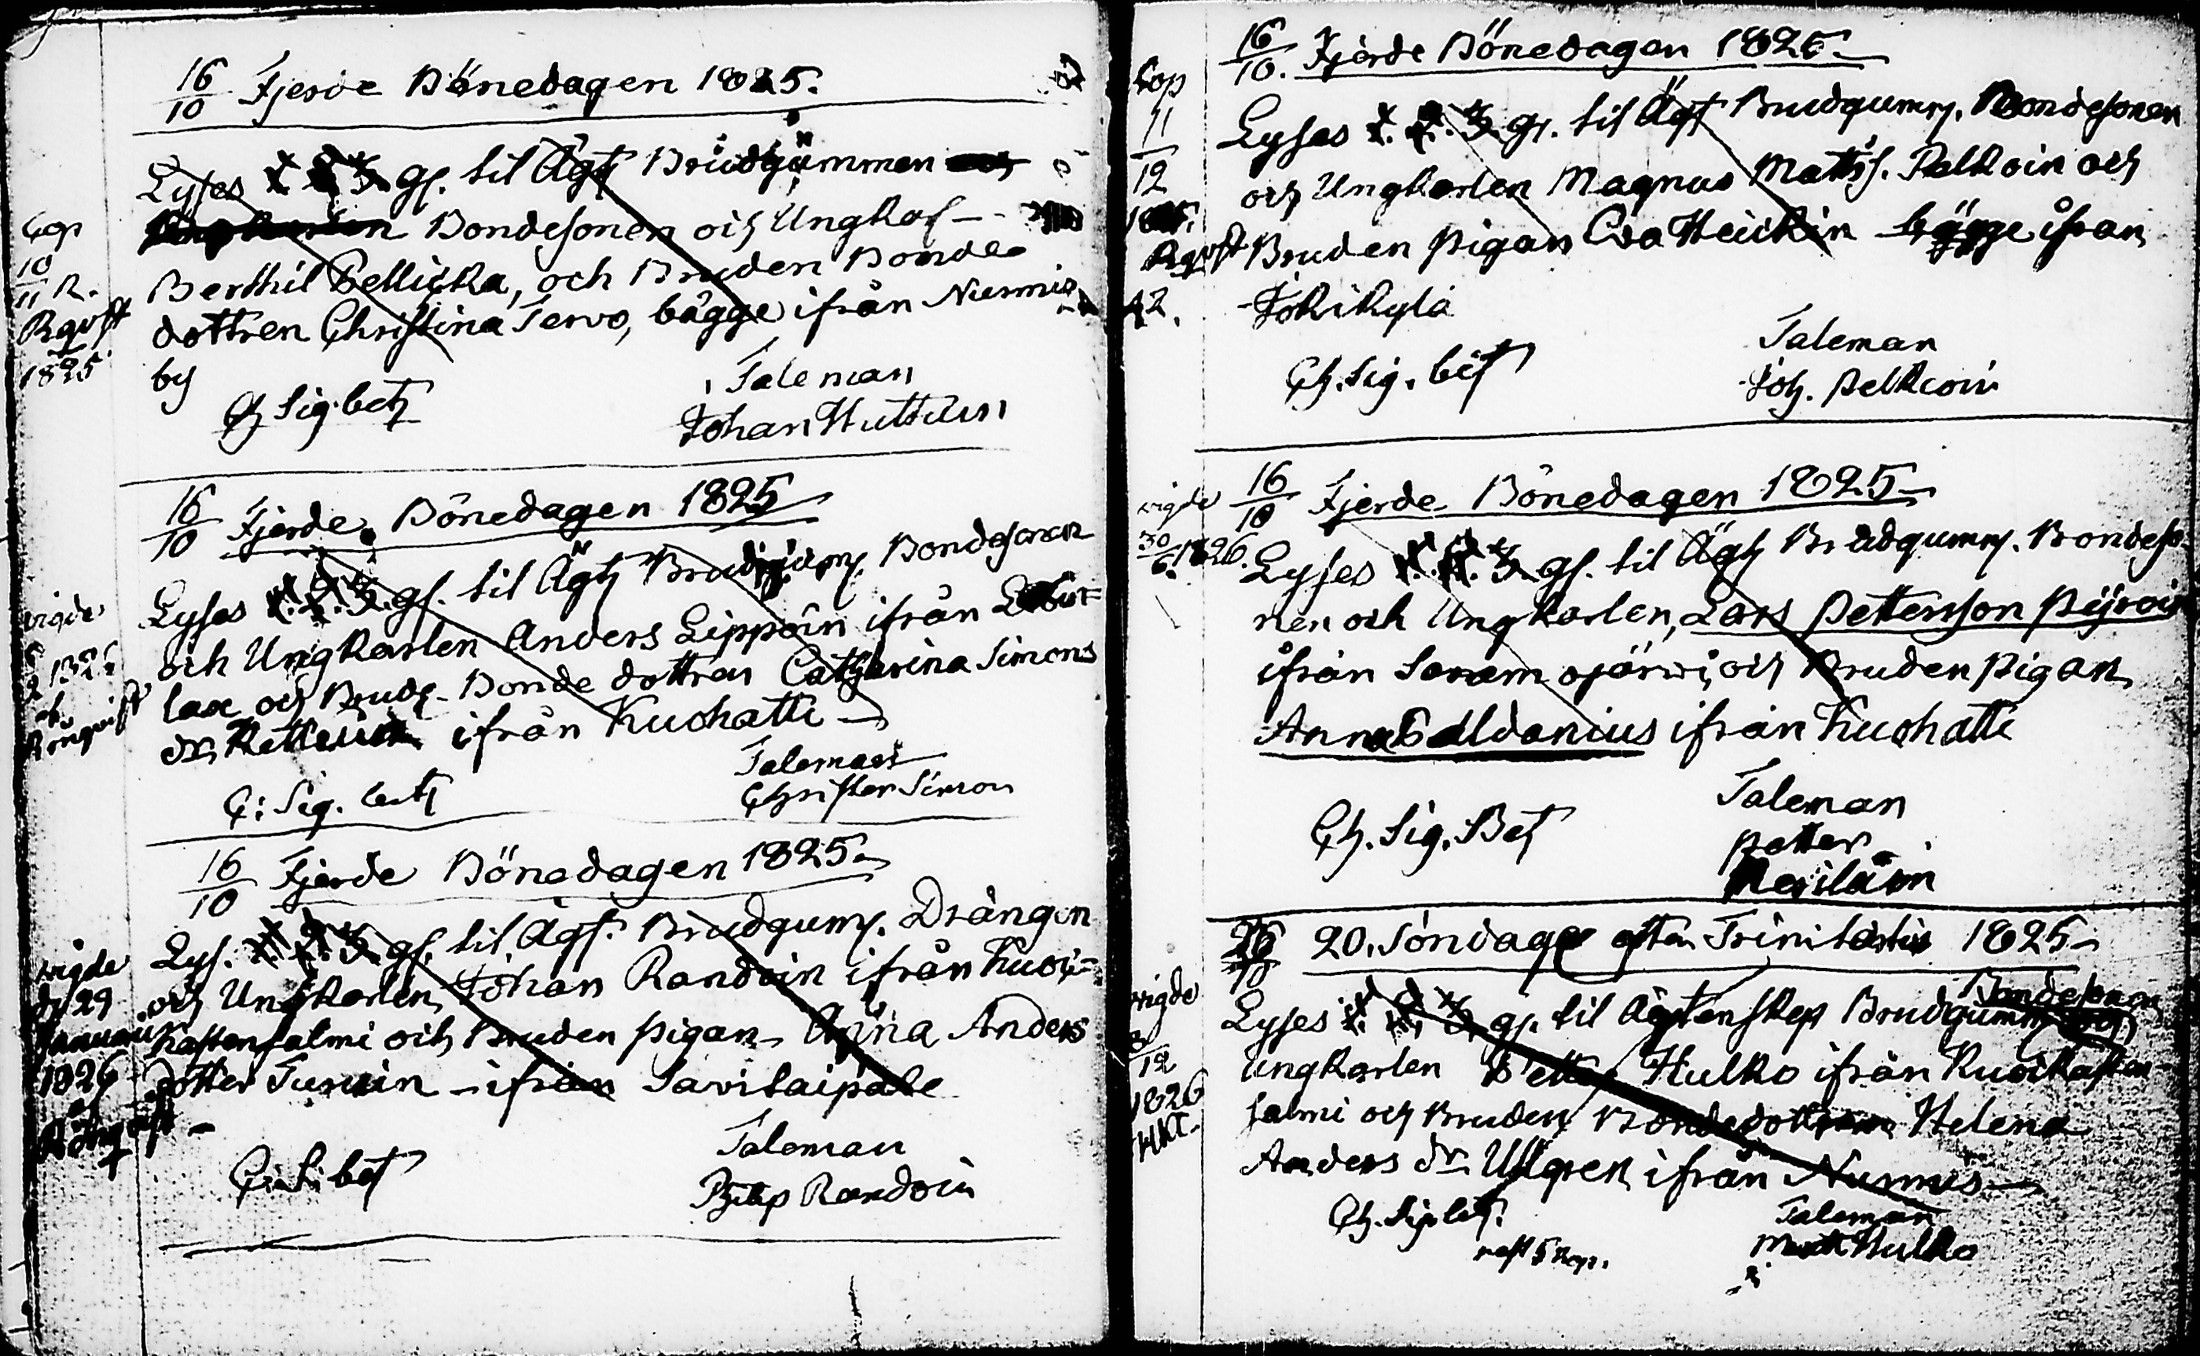 16/10 Fjerde Bönedagen 1825.
Lyses 1. 2. 3. gs. til Ägt Brudgummen
Bondesonen och Ungkar-
Berthil Pellicka, och Bruden Bonde
dottren Christina Tervo, bägge ifrån Nurmis
by
Ch Sig. bet
Taleman
Johan Huttuin
Cop
10/11
Rqvist
1825
16/10 Fjerde Bönedagen 1825
Lyses 1. 2. 3. gs. til Ägt Brudgum. Bondesonen
och Ungkarlen Anders Lippoin ifrån
lax och Brud. Bonde dottren Catharina Simons
dr. ifrån Kuohatti
C: Sig. bet
Taleman
Christer Simon
vigde
af
Rönqvist
16/10 Fjerde Bönedagen 1825
Lys. 1. 2. 3. gs. til Ägt. Brudgum. Drängen
och Ungkarlen Johan Randoin ifrån Kuoi-
kastensalmi och Bruden Pigan Anna Anders
dotter Turuin ifrån Savilaipale
C. S. bet
Taleman
Philip Randoin
vigde
d. 29
Januari
1826
af
Rönqvist
16/10. Fjerde Bönedagen 1825
Lyses 1. 2. 3. gs. til Ägt Brudgumm. Bondesonen
och Ungkarlen Magnus Matts. Palkoin och
Bruden Pigan Eva Heickin bägge ifrån
Jokikylä
Ch. Sig. bet
Taleman
Joh. Pelkoin
Cop
11/12
Rqvist
16/10 Fjerde Bönedagen 1825
Lyses 1. 2. 3. gs. til Ägt Brudgumm. Bondeso-
nen och Ungkarlen, Lars Pettersson Pÿroin
ifrån Saramojärvi, och Bruden Pigan
Anna Caldonius ifrån Kuohatti
Ch. Sig. Bet
Taleman
Petter
vigde
30/6. 1826.
20. Söndage efter Trinitatis 1825
Lyses 1. 2. 3. gs. til Ägtenskap Brudgumm Bondesonen
Ungkarlen Petter Hulko ifrån Kuoikasten-
salmi och Bruden Bondedottren Helena
Anders dr. Ulgren ifrån Nurmis
Ch. Sig bet.
Taleman
Matt Hulko
vigde
3/12
1826